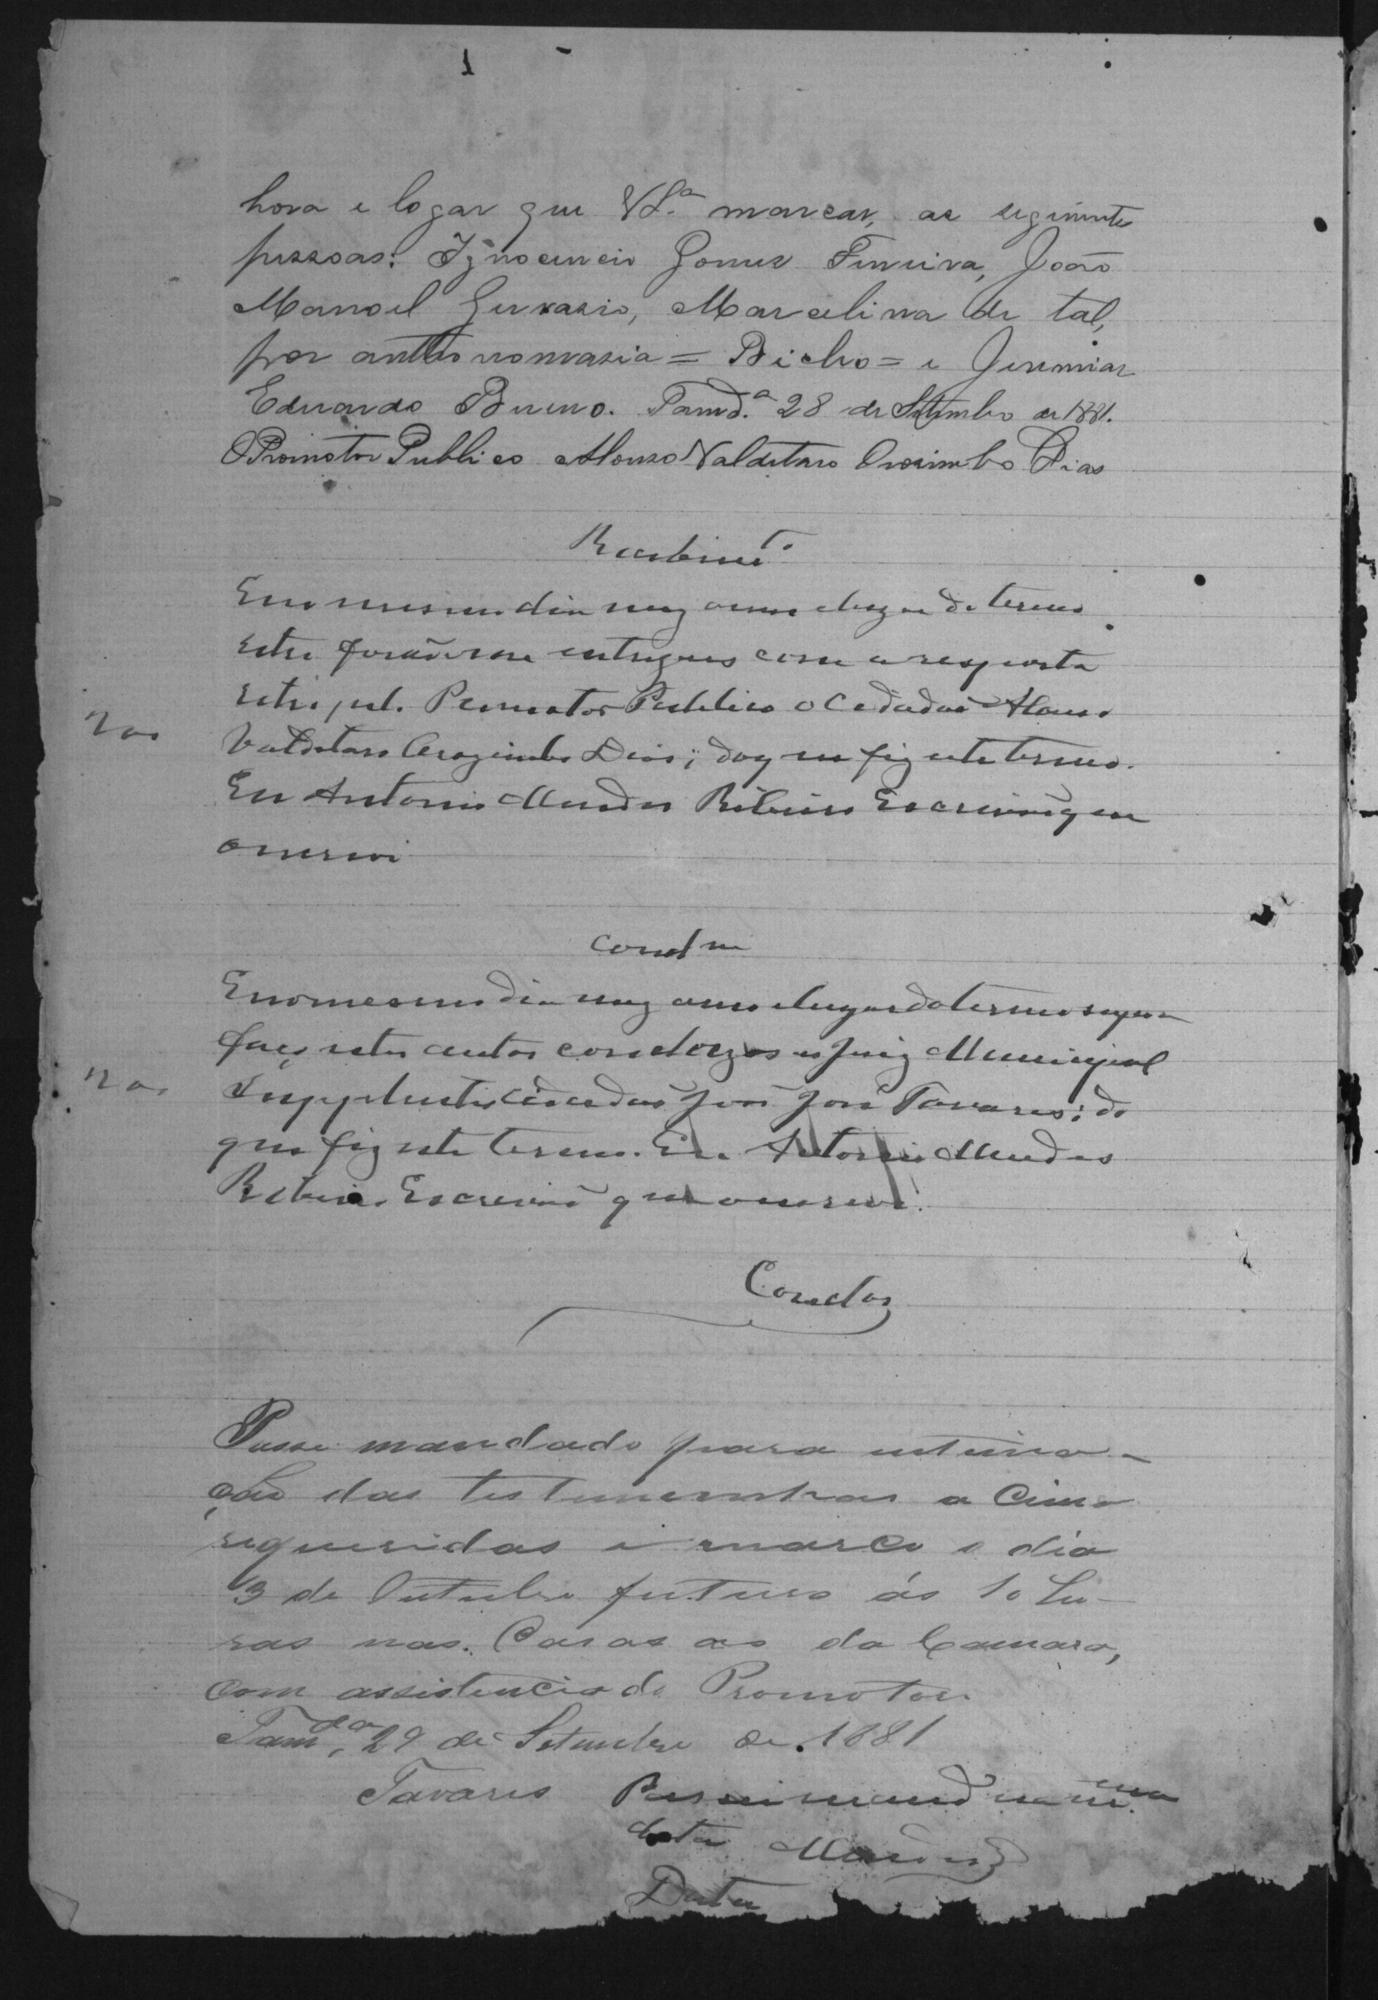 1
hora e logar que VSª marcar, as seguintes
pessoas: Ignocencio Gomes Ferreira, João
Manoel Gervasio, Marcelina de tal,
por anthonomasia = Bicho = e Jeremias
Eduardo Bueno. Tamdª 28 de Setembro de 1881.
O Promotor Publico Afonso Valdetaro Orosimbo Dias
Recebimtº
Eno mesmo dia mez anno e lugar do termo
retro forão-me entregues com a resposta
retro, pel. Promotor Publico o Cidadão Afonso
Nas
Valdetaro Orozimbo Dias; do que fiz este termo.
Eu Antonio Mendes Ribeiro Escrivão que
o escrevi
Conclm
Eno mesmo dia mez anno e lugar do termo supra
faço estes autos conclusos ao Juiz Municipal
Nas
Supplente Cidadão José José Tavares; do
que fiz este termo. Eu Antonio Mendes
Ribeiro Escrivão que o escrevi.
Conclos
Passe mandado para intima-
ção das testemunhas a cima
requeridas e marco o dia
3 de Outubro futuro ás 10 ho-
ras nas Casas da Camara,
com assistencia do Promotor.
Tamdª, 29 de Setembro de 1881
Tavares Passei mandº na mma
data Mendes
Data